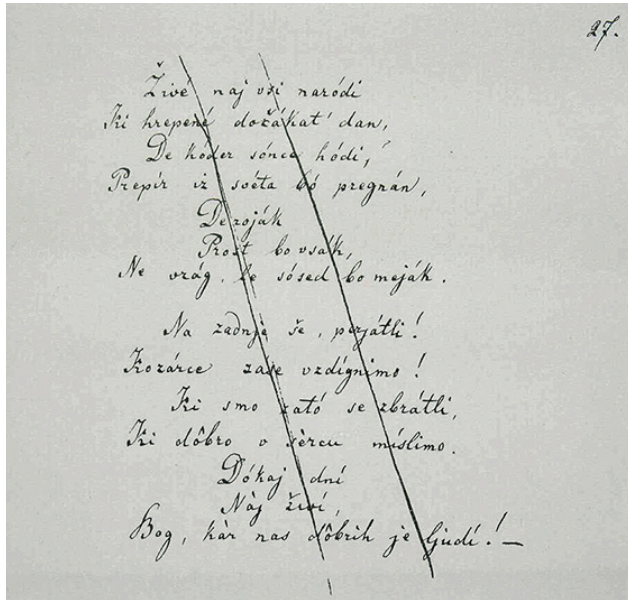 27.
Živé naj vsi naródi
Ki hrepené dočákat' dan,
De kóder sónce hódi,
Prepír iz svéta bó pregnán,
De roják
Prost bo vsák,
Ne vrág, le sósed bo meják.
Na zadnje še, perjátli!
Kozárce zase vzdígnimo!
Ki smo zató se zbrátli,
Ki dôbro v sèrcu míslimo.
Dókaj dní
Nàj živí,
Bog, kàr nas dôbrih je ljudí! —